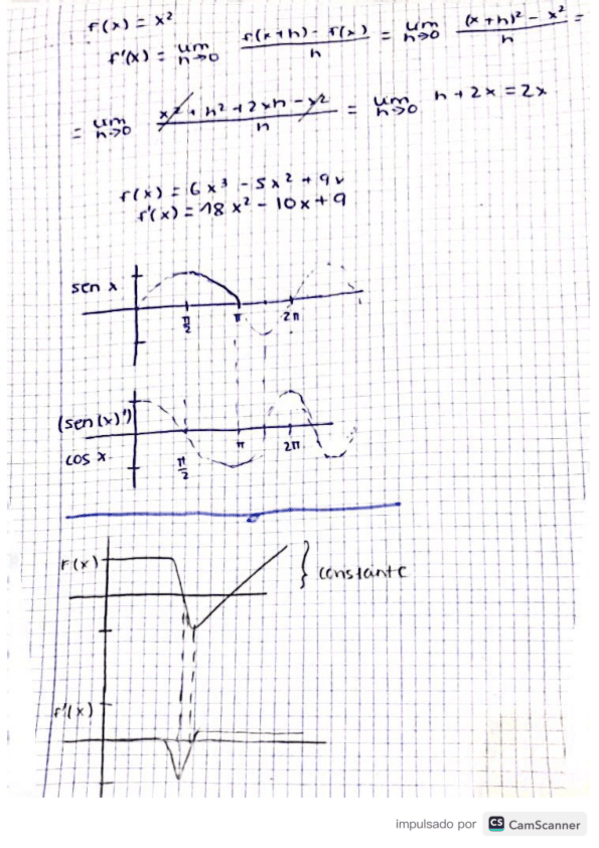 f(x) = x²
f'(x) = lim h→0 f(x+h) - f(x) / h = lim h→0 (x+h)² - x² / h =
= lim h→0 x² + h² + 2xh - x² / h = lim h→0 h + 2x = 2x
f(x) = 6x³ - 5x² + 9x
f'(x) = 18x² - 10x + 9
sen x
π/2 π 2π
(sen(x)')
cos x
π/2 π 2π
F(x)
} constante
f'(x)
impulsado por CS CamScanner